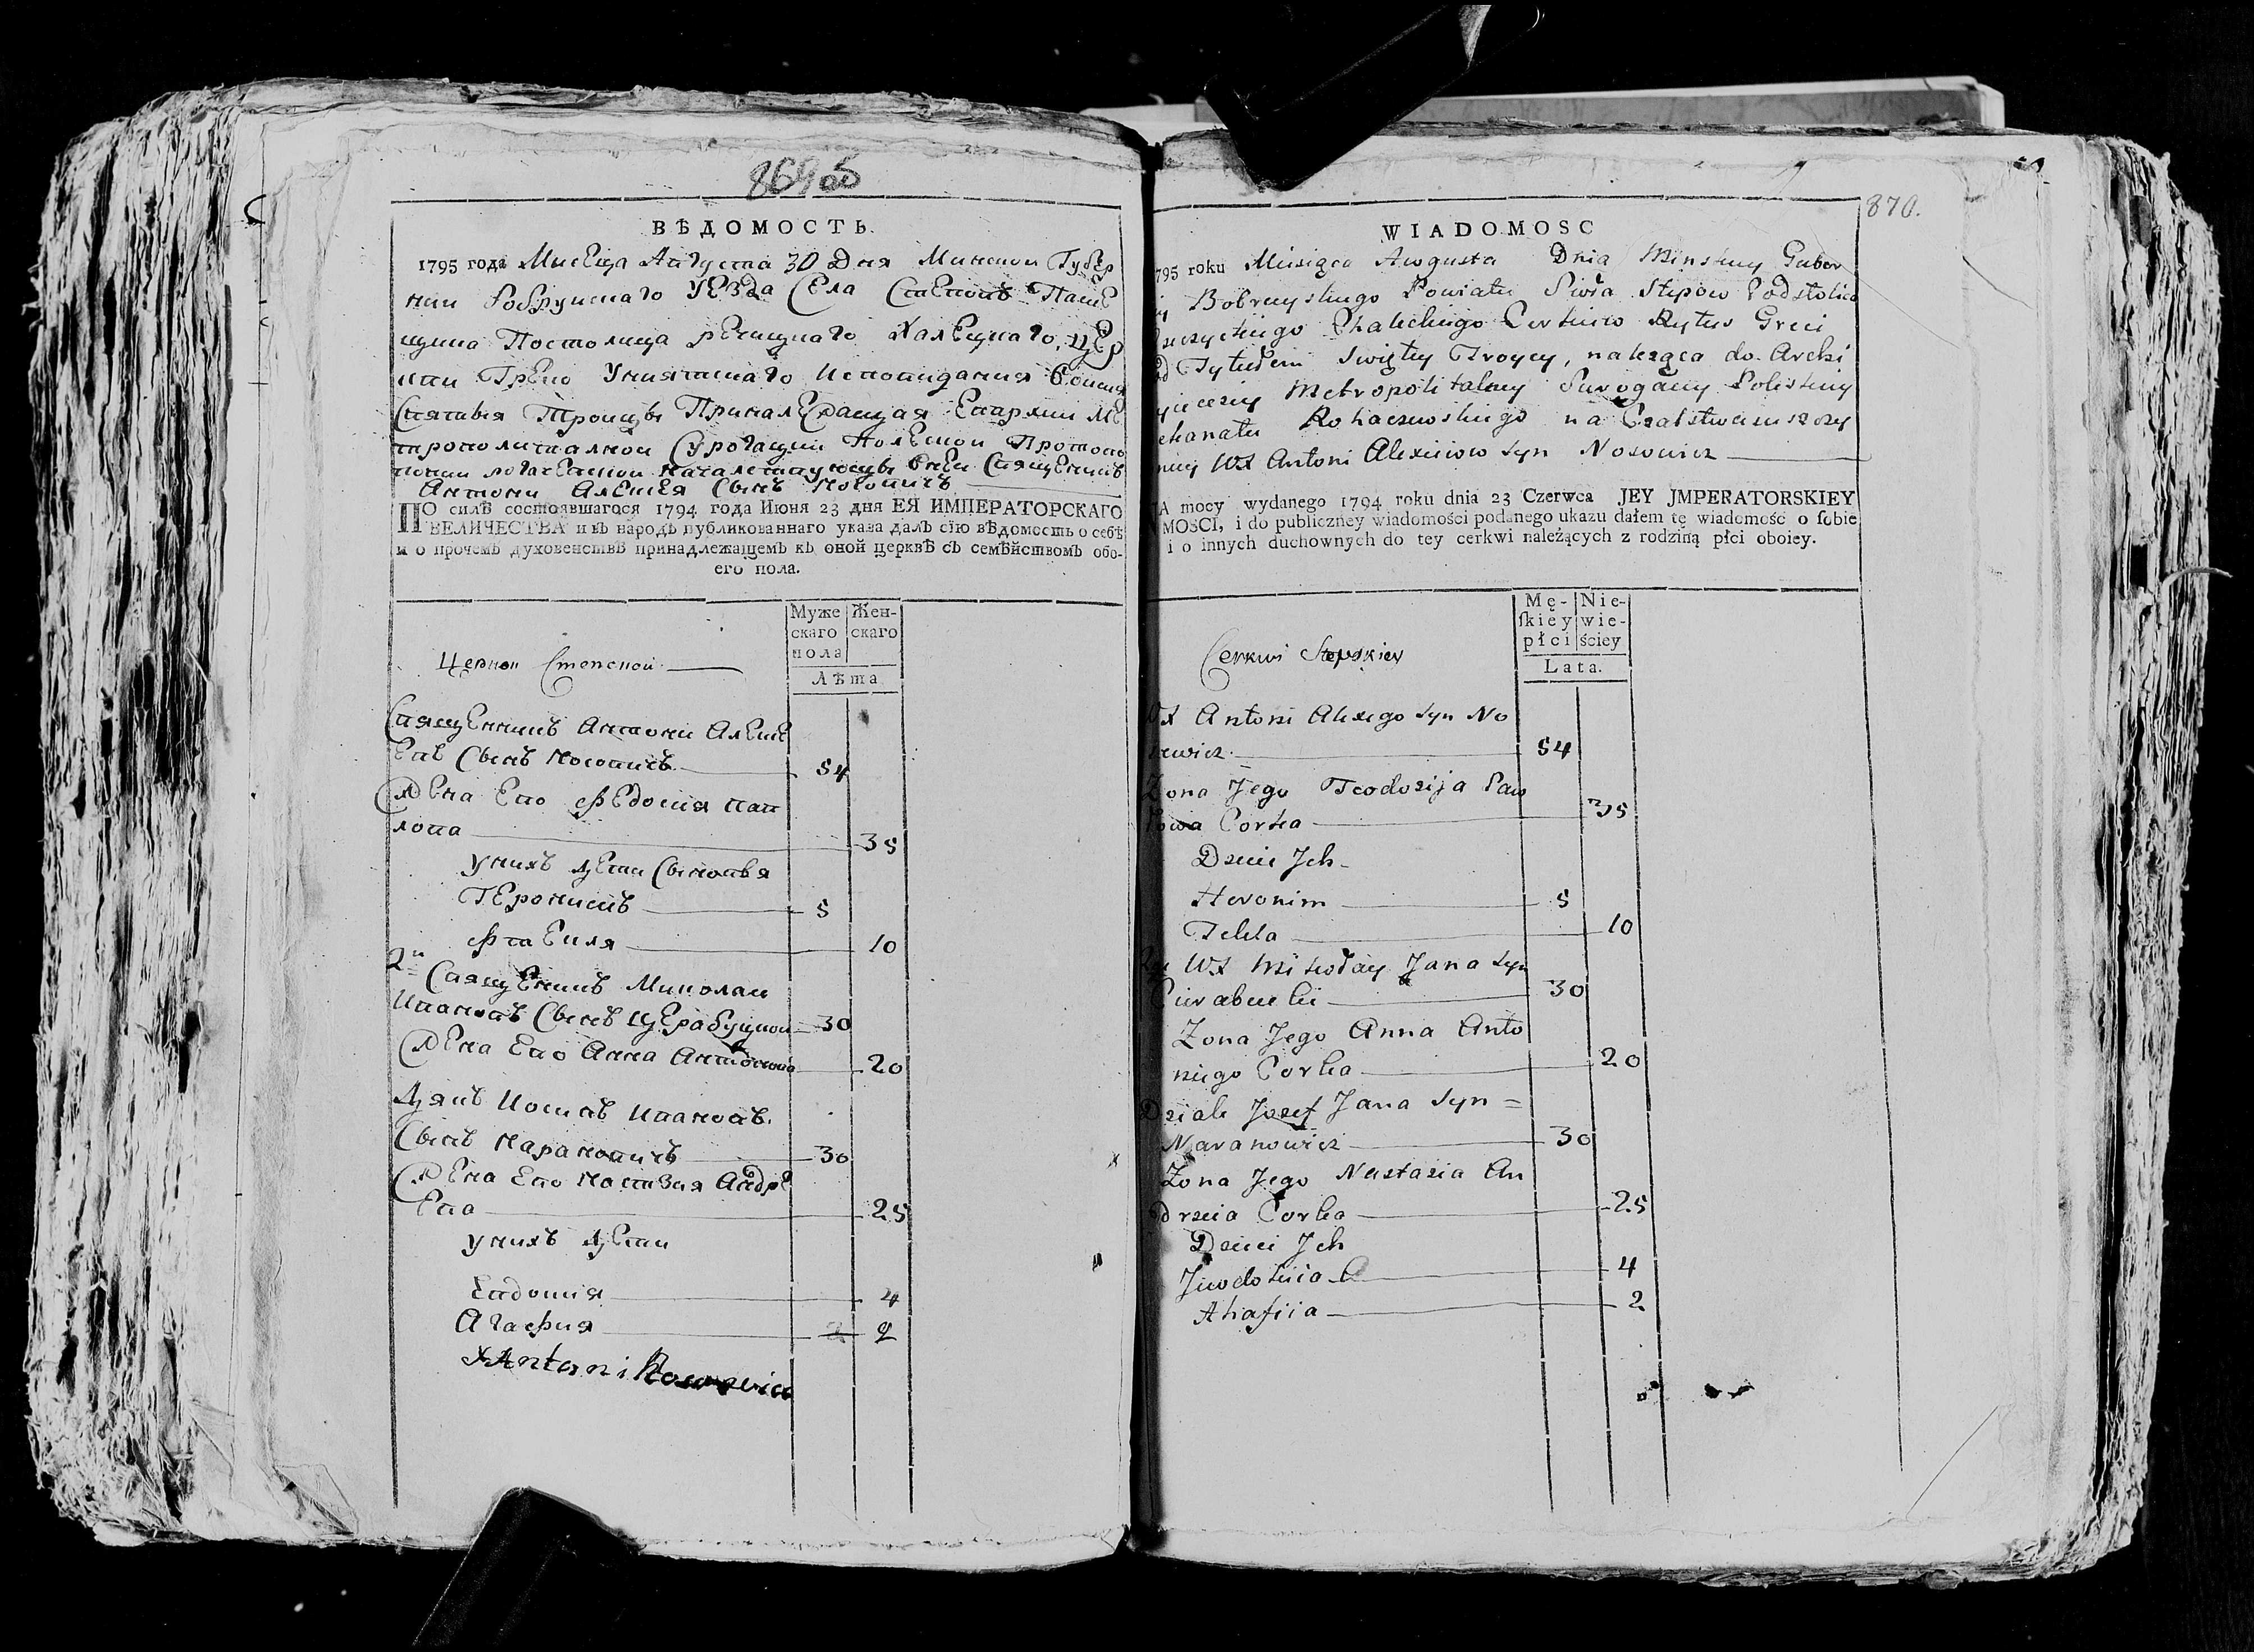 869 об
ВѢДОМОСТЬ.
1795 года Мисеца Августа 30 Дня Минской Губер
нии Бобруйскаго Уезда Села Степовъ
Постолица Речицкаго Халецкаго, Цер
кви Греко Униатскаго Исповидания
Святыя Троицы Принале Епархии Ме
трополиталной Сурогации Полескои Протопо
Священникъ
Антони Алексея Сынъ Носовичъ
ПО силѣ состоявшагося 1794 года Июня 23 дня ЕЯ ИМПЕРАТОРСКАГО
ВЕЛИЧЕСТВА и въ народъ публикованнаго указа далъ сїю вѣдомость о себѣ
и о прочемъ духовенствѣ принадлежащемъ къ оной церквѣ съ семѣйствомъ обо-
его пола.
Муже Жен-
скаго скаго
пола
Лѣта
Церкви Степской
Священникъ Антони Алексе
евъ Сынъ Носовичъ 54
Жена Ево Федосия Пав
лова 35
у нихъ дети Сыновья
Геронимъ 5
Фтекля 10
2й Священникъ Миколаи
Ивановъ Сынъ Церабуцкои 30
Жена Ево Анна Антонова 20
Дякъ Иосивъ Ивановъ
Сынъ Нарановичъ 30
Жена Ево Настазия Андре
ева 25
у нихъ дети
Евдокия 4
Агафия 2 2
X Antoni Nosowicz
870.
WIADOMOSC
795 roku Miesiąca Awgusta Dnia Minskiey Guber
Bobruyskiego Powiatu Sioła Stepow Podstolica
Rzeczyckiego Chaleckiego Cerkwie Rytus Greci
od Tytułem Swiętey Troycy, należąca do Archi
Metropolitalney Surogacyi Poliskiey
ekanatu Rohaczewskiego na
WX Antoni Alexieiow Syn Nosowicz
A mocy wydanego 1794 roku dnia 23 Czerwca JEY JMPERATORSKIEY
MOSCI, i do publiczney wiadomości podanego ukazu dałem tę wiadomość o sobie
i o innych duchownych do tey cerkwi należących z rodziną płci oboiey.
Mę- Nie-
skiey wie-
płci ściey
Lata.
Cerkwi Stepskiey
WX Antoni Alexego Syn No
sewicz 54
Zona Jego Teodozija Paw
łowa Corka 35
Dzieci Jch
Heronim 5
Tekla 10
2gi WX Mikołay Jana Syn
Cierabucki 30
Zona Jego Anna Anto
niego Corka 20
Dziak Jozef Jana Syn =
Naranowicz 30
Zona Jego Nastazia An
drzeia Corka 25
Dzieci Jch
Jewdokiia 4
Ahafiia 2